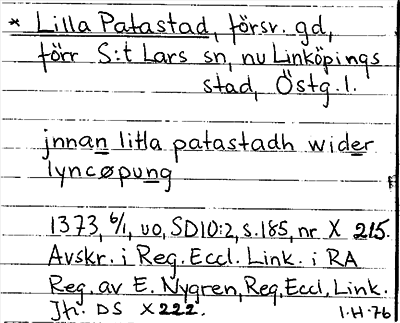 * Lilla Patastad, försv. gd,
förr S:t Lars sn, nu Linköpings
stad, Östg. l.
jnnan litla patastadh wider
lyncøpung
1373, 6/1, uo, SD10:2, s.185, nr X 215.
Avskr. i Reg. Eccl. Link. i RA
Reg. av E. Nygren, Reg. Eccl. Link.
Jfr. DS X 222.
I.H-76